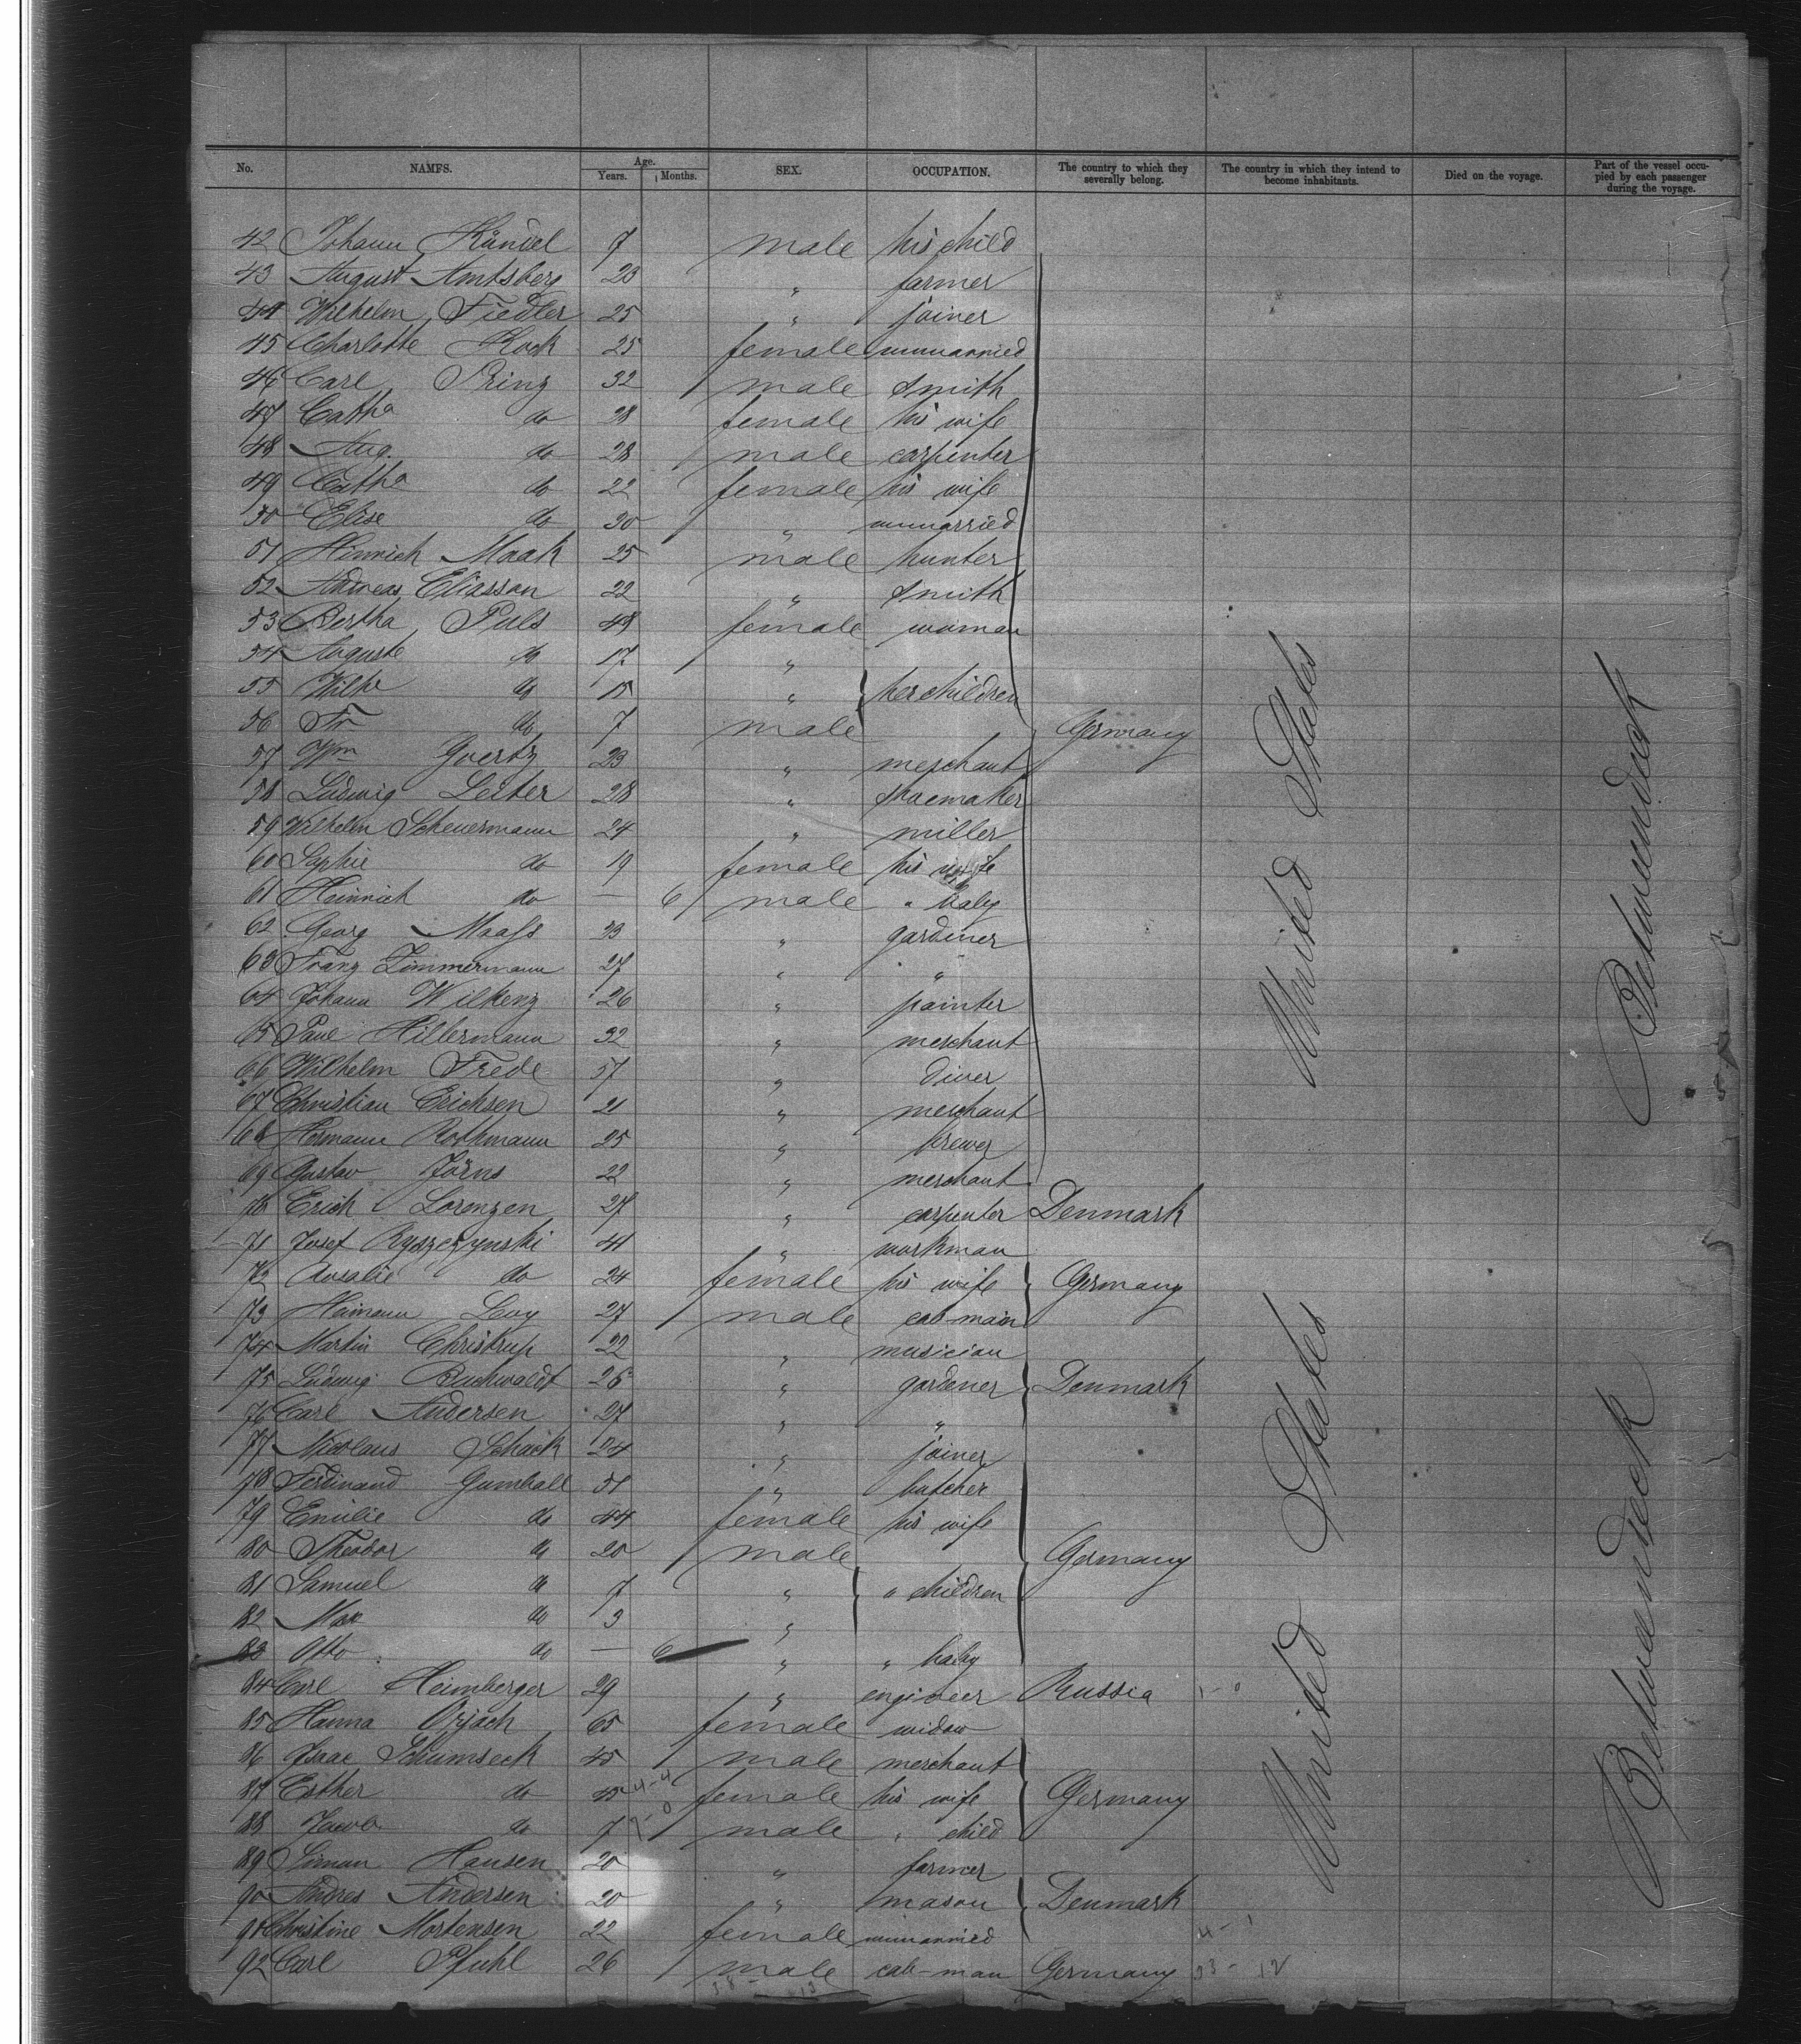 No. NAMES. Age. Years. Months. SEX. OCCUPATION. The country to which they severally belong. The country in which they intend to become inhabitants. Died on the voyage. Part of the vessel occupied by each passenger during the voyage.
42 Johann Händel 7 male his child
43 August Amtsberg 23 " farmer
44 Wilhelm Fiedler 25 " joiner
45 Charlotte Kock 25 female unmarried
46 Carl Prinz 32 male smith
47 Catha do 28 female his wife
48 Aug. do 28 male carpenter
49 Catha do 22 female his wife
50 Elise do 30 " unmarried
51 Hinrich Maak 25 male hunter
52 Andreas Eliasson 22 " smith
53 Bertha Puls 48 female woman
54 Auguste do 17 "
55 Wilhe do 15 " her children
56 Fr do 7 male Germany
57 Wm Goertz 23 " merchant
58 Ludwig Leiber 28 " shoemaker
59 Wilhelm Scheuermann 24 " miller
60 Sophie do 19 female his wife
61 Heinrich do — 6 male " baby
62 Georg Maass 23 " gardiner
63 Franz Zimmermann 27 " "
64 Johann Wilkenz 26 " painter
65 Paul Hillermann 32 " merchant
66 Wilhelm Frede 57 " diver
67 Christian Erichsen 21 " merchant
68 Hermann Rothmann 25 " brewer
69 Gustav Jörns 22 " merchant
70 Erich Lorenzen 27 " carpenter Denmark
71 Josef Ryszczynski 41 " workman
72 Rosalie do 24 female his wife Germany
73 Heimann Levy 27 male cab-man
74 Martin Christrup 22 " musician
75 Ludwig Buchwaldt 26 " gardener Denmark
76 Carl Andersen 27 " "
77 Nicolaus Schack 24 " joiner
78 Ferdinand Gumball 51 " butcher
79 Emilie do 44 female his wife
80 Theodor do 20 male Germany
81 Samuel do 7 " " children
82 Max do 3 "
83 Otto do — 6 " " baby
84 Carl Heimberger 29 " engineer Russia 1-0
85 Hanna Orjach 65 female widow
86 Isaac Schumseck 45 male merchant
87 Esther do 45 4-4 female his wife Germany
88 Jacob do 7 7-0 male " child
89 Simon Hansen 20 " farmer
90 Andres Andersen 20 " mason Denmark
91 Christine Mortensen 22 female unmarried 4-1
92 Carl Pfuhl 26 male cab-man Germany 33-12
38-13
United States
United States
Betweendeck
Betweendeck